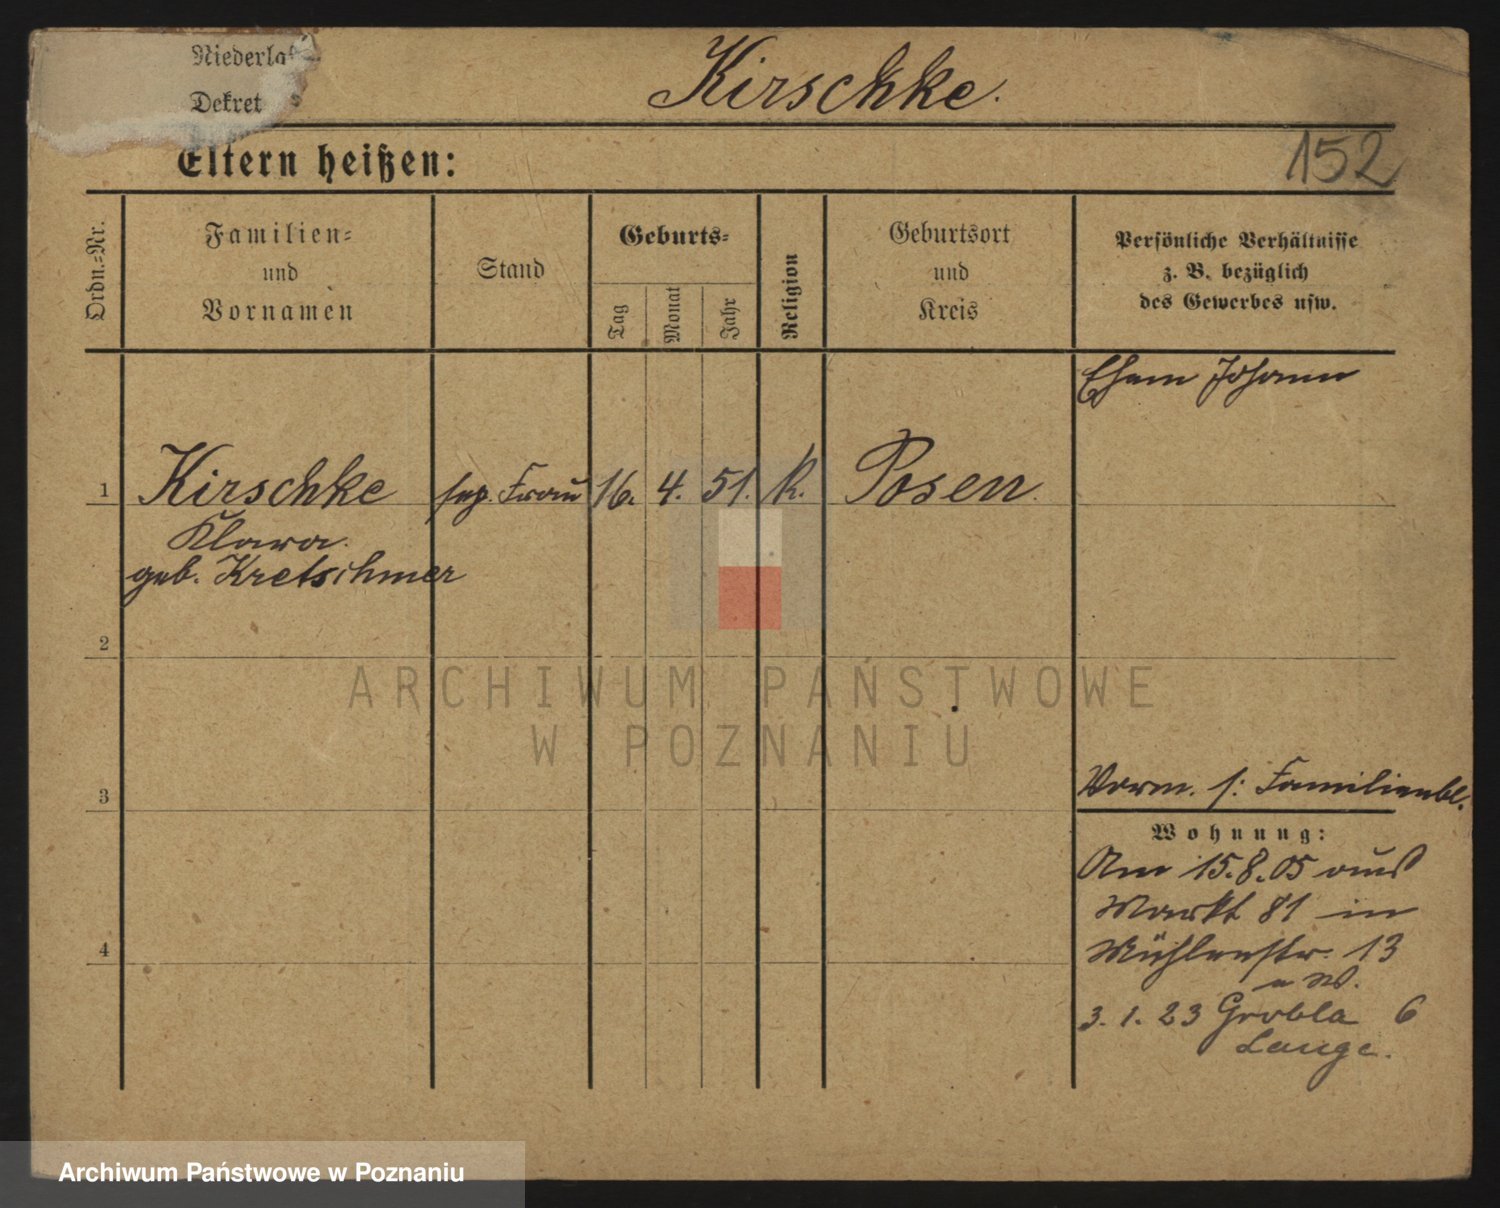 Niederla
Dekret
Kirschke.
Eltern heißen:
152
Ordn.-Nr.
Familien-
und
Vornamen
Stand
Geburts-
Tag
Monat
Jahr
Religion
Geburtsort
und
Kreis
Persönliche Verhältnisse
z. B. bezüglich
des Gewerbes usw.
Ehem Johann
1 Kirschke sep. Frau 16. 4. 51. k. Posen.
Klara.
geb. Kretschmer
2
3
4
Verm. s: Familienbl.
Wohnung:
Am 15.8.05 aus
Markt 81 in
Mühlenstr. 13
3. 1. 23 Grobla 6
Lange.
ARCHIWUM PAŃSTWOWE
W POZNANIU
Archiwum Państwowe w Poznaniu